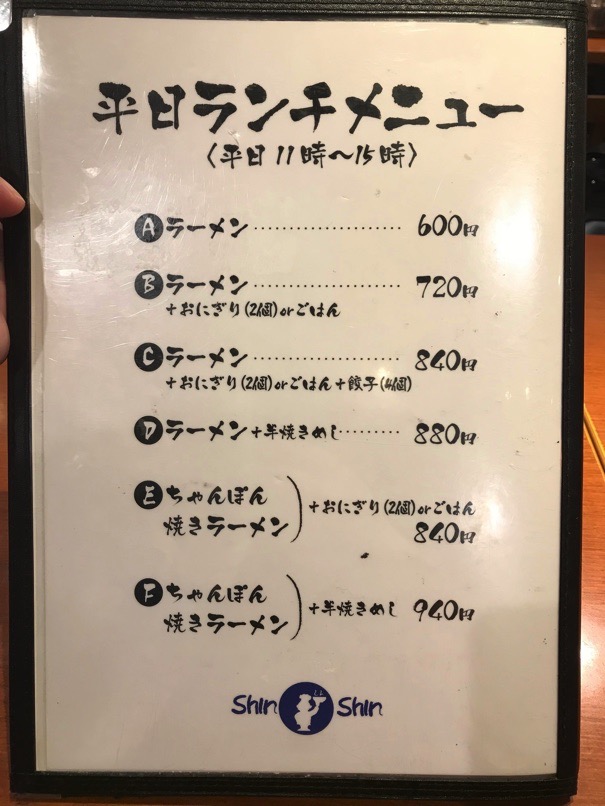 平日ランチメニュー
〈平日11時〜15時〉
A ラーメン 600円
B ラーメン 720円
+おにぎり(2個)orごはん
C ラーメン 840円
+おにぎり(2個)orごはん+餃子(4個)
D ラーメン+半焼きめし 880円
E ちゃんぽん
焼きラーメン
+おにぎり(2個)orごはん
840円
F ちゃんぽん
焼きラーメン
+半焼きめし 940円
Shin Shin